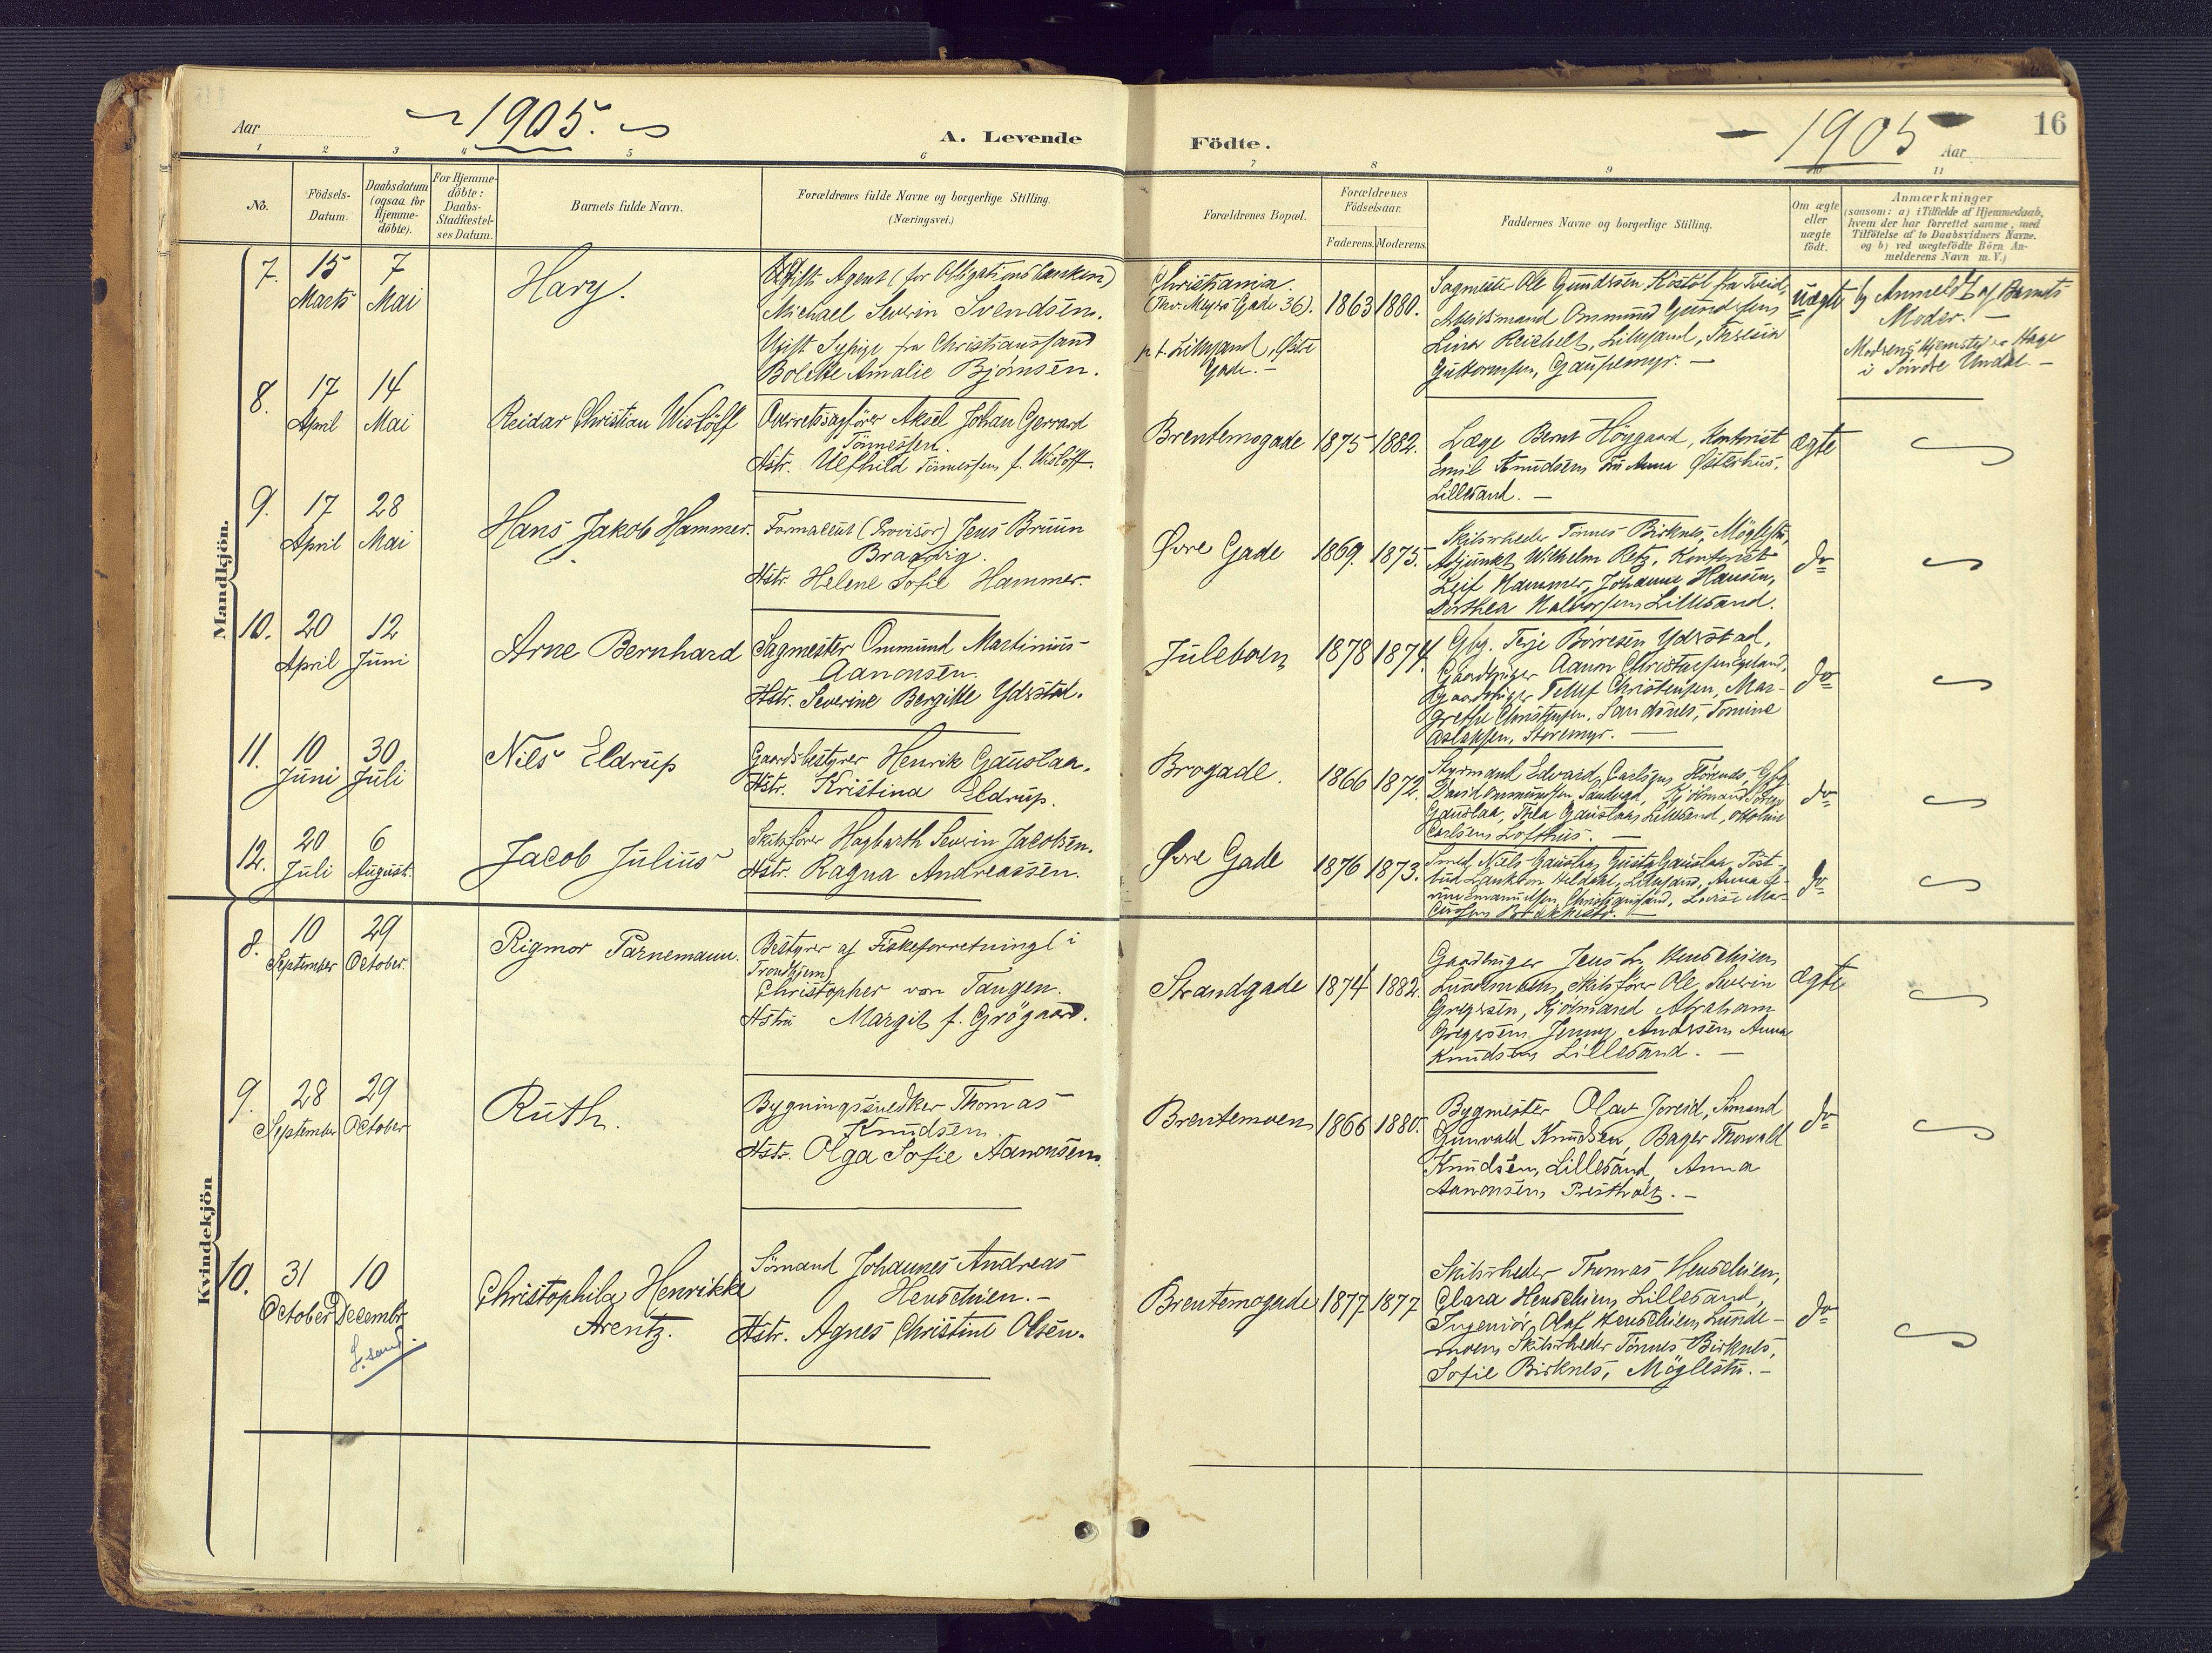 Aar
~ 1905. ~
A. Levende
Födte.
- 1905 -
Aar
16
1 2 3 4 5 6
7 8 9 10 11
No.
Födsels-
Datum.
Daabsdatum
(ogsaa for
Hjemme-
döbte).
For Hjemme-
döbte:
Daabs-
Stadfæstel-
ses Datum.
Barnets fulde Navn.
Forældrenes fulde Navne og borgerlige Stilling.
(Næringsvei.)
Forældrenes Bopæl.
Forældrenes
Födselsaar.
Faderens. Moderens.
Faddernes Navne og borgerlige Stilling.
Om ægte
eller
uægte
födt.
Anmærkninger
(saasom: a) i Tilfælde af Hjemmedaab,
hvem der har forrettet samme, med
Tilföielse af to Daabsvidners Navne.
og b) ved uægtefödte Börn An-
melderens Navn m.V.)
Mandkjön.
7.
15
Marts
7
Mai
Hary.
Ugift Agent (for Obligationsbanken)
Michael Severin Svendsen.
Ugift Sypige fra Christianssand
Bolette Amalie Bjørnsen.
Christiania.
(Thv. Meyers Gade 36).
p. t. Lillesand, Østre
Gade. -
1863
1880.
Sagmester Ole Gundersen Kostöl fra Tveid,
Arbeidsmand Ommund Gundersen
Lina Reichelt, Lillesand, Theresia
Guttormsen, Gaupemyr. -
uægte
b) Anmeldt af Barnets
Moder. -
Moderens Hjemsted er Hage
i Söndre Undal. -
8.
17
April
14
Mai
Reidar Christian Wislöff
Overretssagförer Aksel Johan Gerrard
Tönnessen.
Hstr. Ulfhild Tönnessen f. Wislöff.
Brentemogade
1875
1882.
Læge Bernt Höygaard, Kontorist
Emil Knudsen Fru Anna Østerhus,
Lillesand. -
ægte
9.
17
April
28
Mai
Hans Jakob Hammer.
Farmaceut (Provisor) Jens Bruun
Bragdvig.
Hstr. Helene Sofie Hammer.
Øvre Gade
1869.
1875.
Skibsrheder Tönnes Birknes, Möglestu,
Adjunkt Wilhelm Retz, Kontorist
Leif Hammer, Johanne Hansen,
Dorthea Halvorsen Lillesand.
do
10.
20
April
12
Juni
Arne Bernhard
Sagmester Ommund Martinius
Aanonsen.
Hstr. Severine Bergitte Ydrstad.
Juleboen
1878
1874.
Gbg. Terje Börresen Ydrstad,
Gaardbruger Aanon Christensen Egeland,
Gaardbruger Tellef Christensen, Mar-
grethe Christensen, Sandsnes, Tomine
Aslaksen, Storemyr. -
do
11.
10
Juni
30
Juli
Nils Eldrup
Gaardsbestyrer Henrik Gauslaa.
Hstr. Kristina Eldrup.
Brogade.
1866
1872.
Styrmand Edvard Carlsen, Gbg.
David Ommundsen
Gauslaa, Thea Gauslaa, Lillesand, Ottomine
Carlsen Lofthus. -
do
12.
20
Juli
6
August.
Jacob Julius
Skibsförer Hagbarth Severin Jacobsen.
Hstr. Ragna Andreassen.
Øvre Gade
1876
1873.
Smed Niels Gauslaa, Gusta Gauslaa, Post-
bud Hildahl, Lillesand, Anna Se-
rine Emanuelsen, Christianssand, Lovise Mar-
do
Kvindekjön
8.
10
September
29
October.
Rigmor Parnemann.
Bestyrer af Fiskeforretning i
Trondhjem,
Christopher von Tangen.
Hstru Margit f. Grögaard.
Strandgade
1874
1882.
Gaardbruger Jens L. Henschien
Lundemoen, Skibsförer Ole Severin
Gregersen, Kjölmand Abraham
Gregersen, Jenny Andersen Anna
Knudsen Lillesand. -
ægte
9.
28
September
29
October
Ruth.
Bygningssnedker Thomas
Knudsen.
Hstr. Olga Sofie Aanonsen.
Brentemoen
1866
1880.
Bygmester Olav Joreid, Sömand
Gunvald Knudsen, Bager Thorvald
Knudsen, Lillesand, Anna
Aanonsen, Prestholt. -
do
10.
31
October
10
Decembr.
L.sand
Christophila Henrikke
Arentz.
Sömand Johannes Andreas
Henschien. -
Hstr. Agnes Christine Olsen.
Brentemogade
1877
1877
Skibsrheder Thomas Henschien,
Clara Henschien Lillesand,
Ingeniör Olaf Henschien Lunde-
moen, Skibsrheder Tönnes Birknes,
Sofie Birknes, Möglestu. -
do